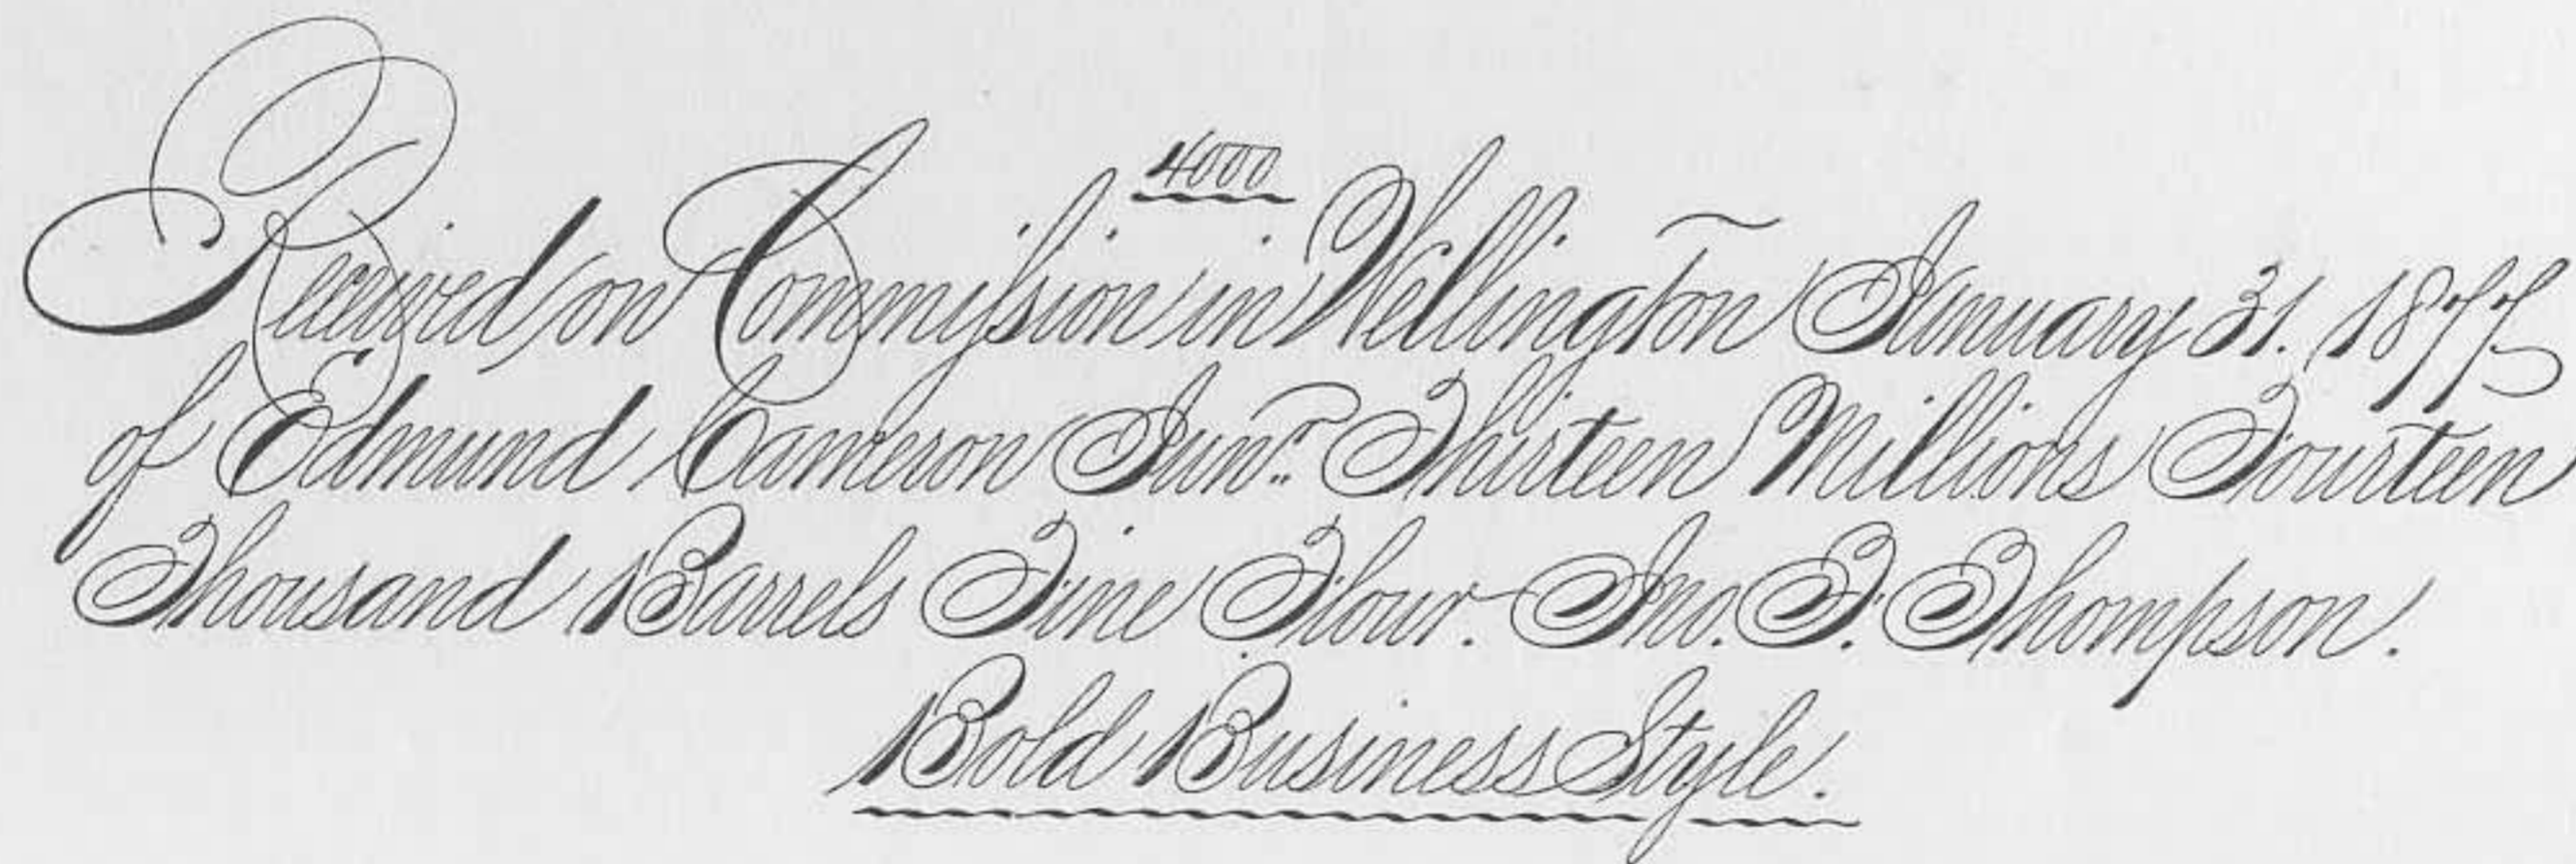 4000
Received on Commission in Wellington January 31. 1877
of Edmund Cameron Junr. Thirteen Millions Fourteen
Thousand Barrels Fine Flour. Jno. F. Thompson.
Bold Business Style.